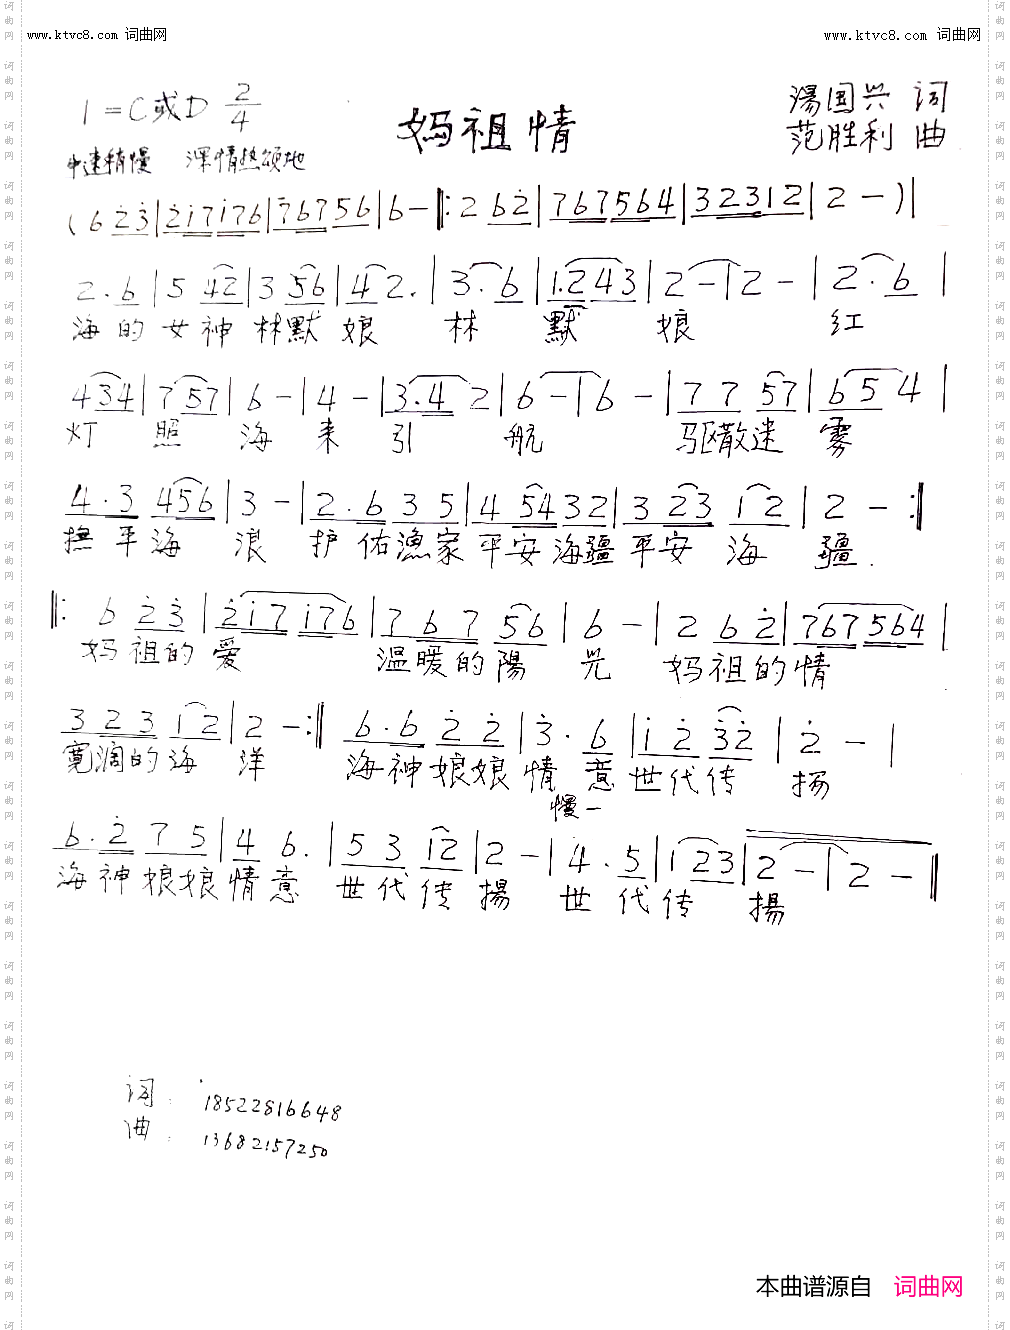 www.ktvc8.com 词曲网 www.ktvc8.com 词曲网
1=C或D 2/4
妈祖情
湯国兴 词
范胜利 曲
中速稍慢 深情热颂地
(6 2̇3̇|2̇i̇7i̇76|767 56|6-‖:2 62̇|767564|32312|2-)|
2.6|5 42|3 56|4 2.|3.6|1.243|2-|2-|2.6|
海的女神林默娘 林 默 娘 红
434|7 57|6-|4-|3.4 2|6-|6-|77 57|65 4|
灯 照 海 来 引 航 驱散迷 雾
4.3 456|3-|2.6 35|4 5432|3 23 12|2-:‖
撫平海 浪 护佑渔家平安海疆平安 海 疆.
‖:6 2̇3̇|2̇i̇7 i̇76|767 56|6-|2 62̇|767 564|
妈祖的爱 温暖的陽 光 妈祖的情
323 12|2-:‖6.6 2̇2̇|3̇.6|i̇2̇ 3̇2̇|2̇-|
寛阔的海 洋 海神娘娘情 意世代传 扬
慢一
6.2̇ 75|4 6.|53 12|2-|4.5|1 23|2-|2-‖
海神娘娘情意 世代传揚 世代传 揚
词: 18522816648
曲: 13682157250
本曲谱源自 词曲网